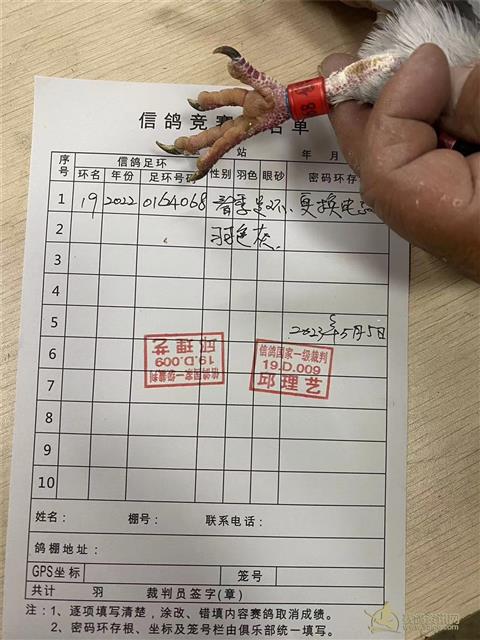 信鸽竞赛名单
站 年 月
序号 信鸽足环 性别 羽色 眼砂 密码环存
环名 年份 足环号码
1 19 2022 0164068 更换电
2 羽色灰.
3
4
5 2023年5月5日
6 信鸽国家一级裁判 19.D.009 邱理艺
信鸽国家一级裁判 19.D.009 邱理艺
7
8
9
10
姓名： 棚号： 联系电话：
鸽棚地址：
GPS坐标 笼号
共计 羽 裁判员签字(章)
注：1、逐项填写清楚，涂改、错填内容赛鸽取消成绩。
2、密码环存根、坐标及笼号栏由俱乐部统一填写。